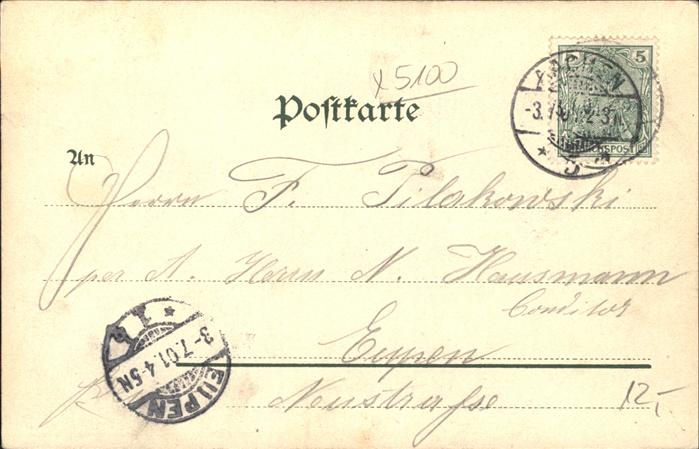 x 5100
5
AACHEN
-3.7.01. 2-3N.
* 5
REICHSPOST
Postkarte
An
Herrn F. Pilakowski
per A. Herrn N. Hausmann
Conditor
Eupen
Neustraße
12,-
EUPEN
3-7.01.4-5N